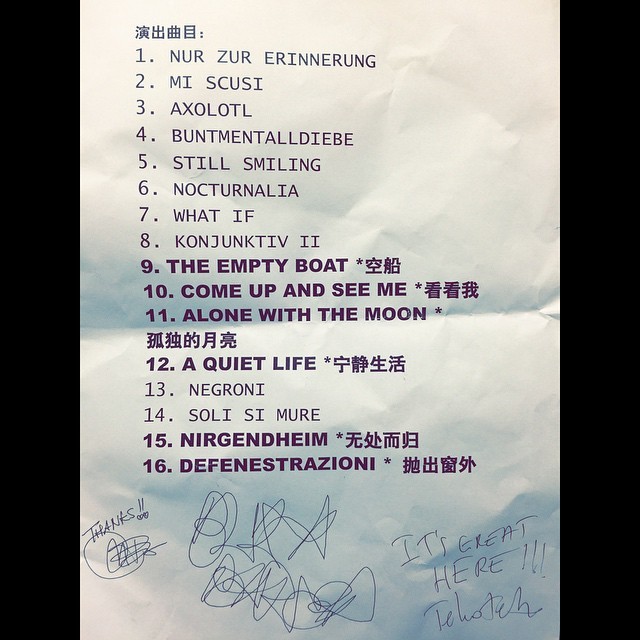 演出曲目：
1. NUR ZUR ERINNERUNG
2. MI SCUSI
3. AXOLOTL
4. BUNTMENTALLDIEBE
5. STILL SMILING
6. NOCTURNALIA
7. WHAT IF
8. KONJUNKTIV II
9. THE EMPTY BOAT *空船
10. COME UP AND SEE ME *看看我
11. ALONE WITH THE MOON *
孤独的月亮
12. A QUIET LIFE *宁静生活
13. NEGRONI
14. SOLI SI MURE
15. NIRGENDHEIM *无处而归
16. DEFENESTRAZIONI * 抛出窗外
THANKS!!
IT'S GREAT
HERE !!!